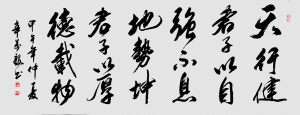 天行健
君子以自
强不息
地势坤
君子以厚
德载物
甲午年仲夏